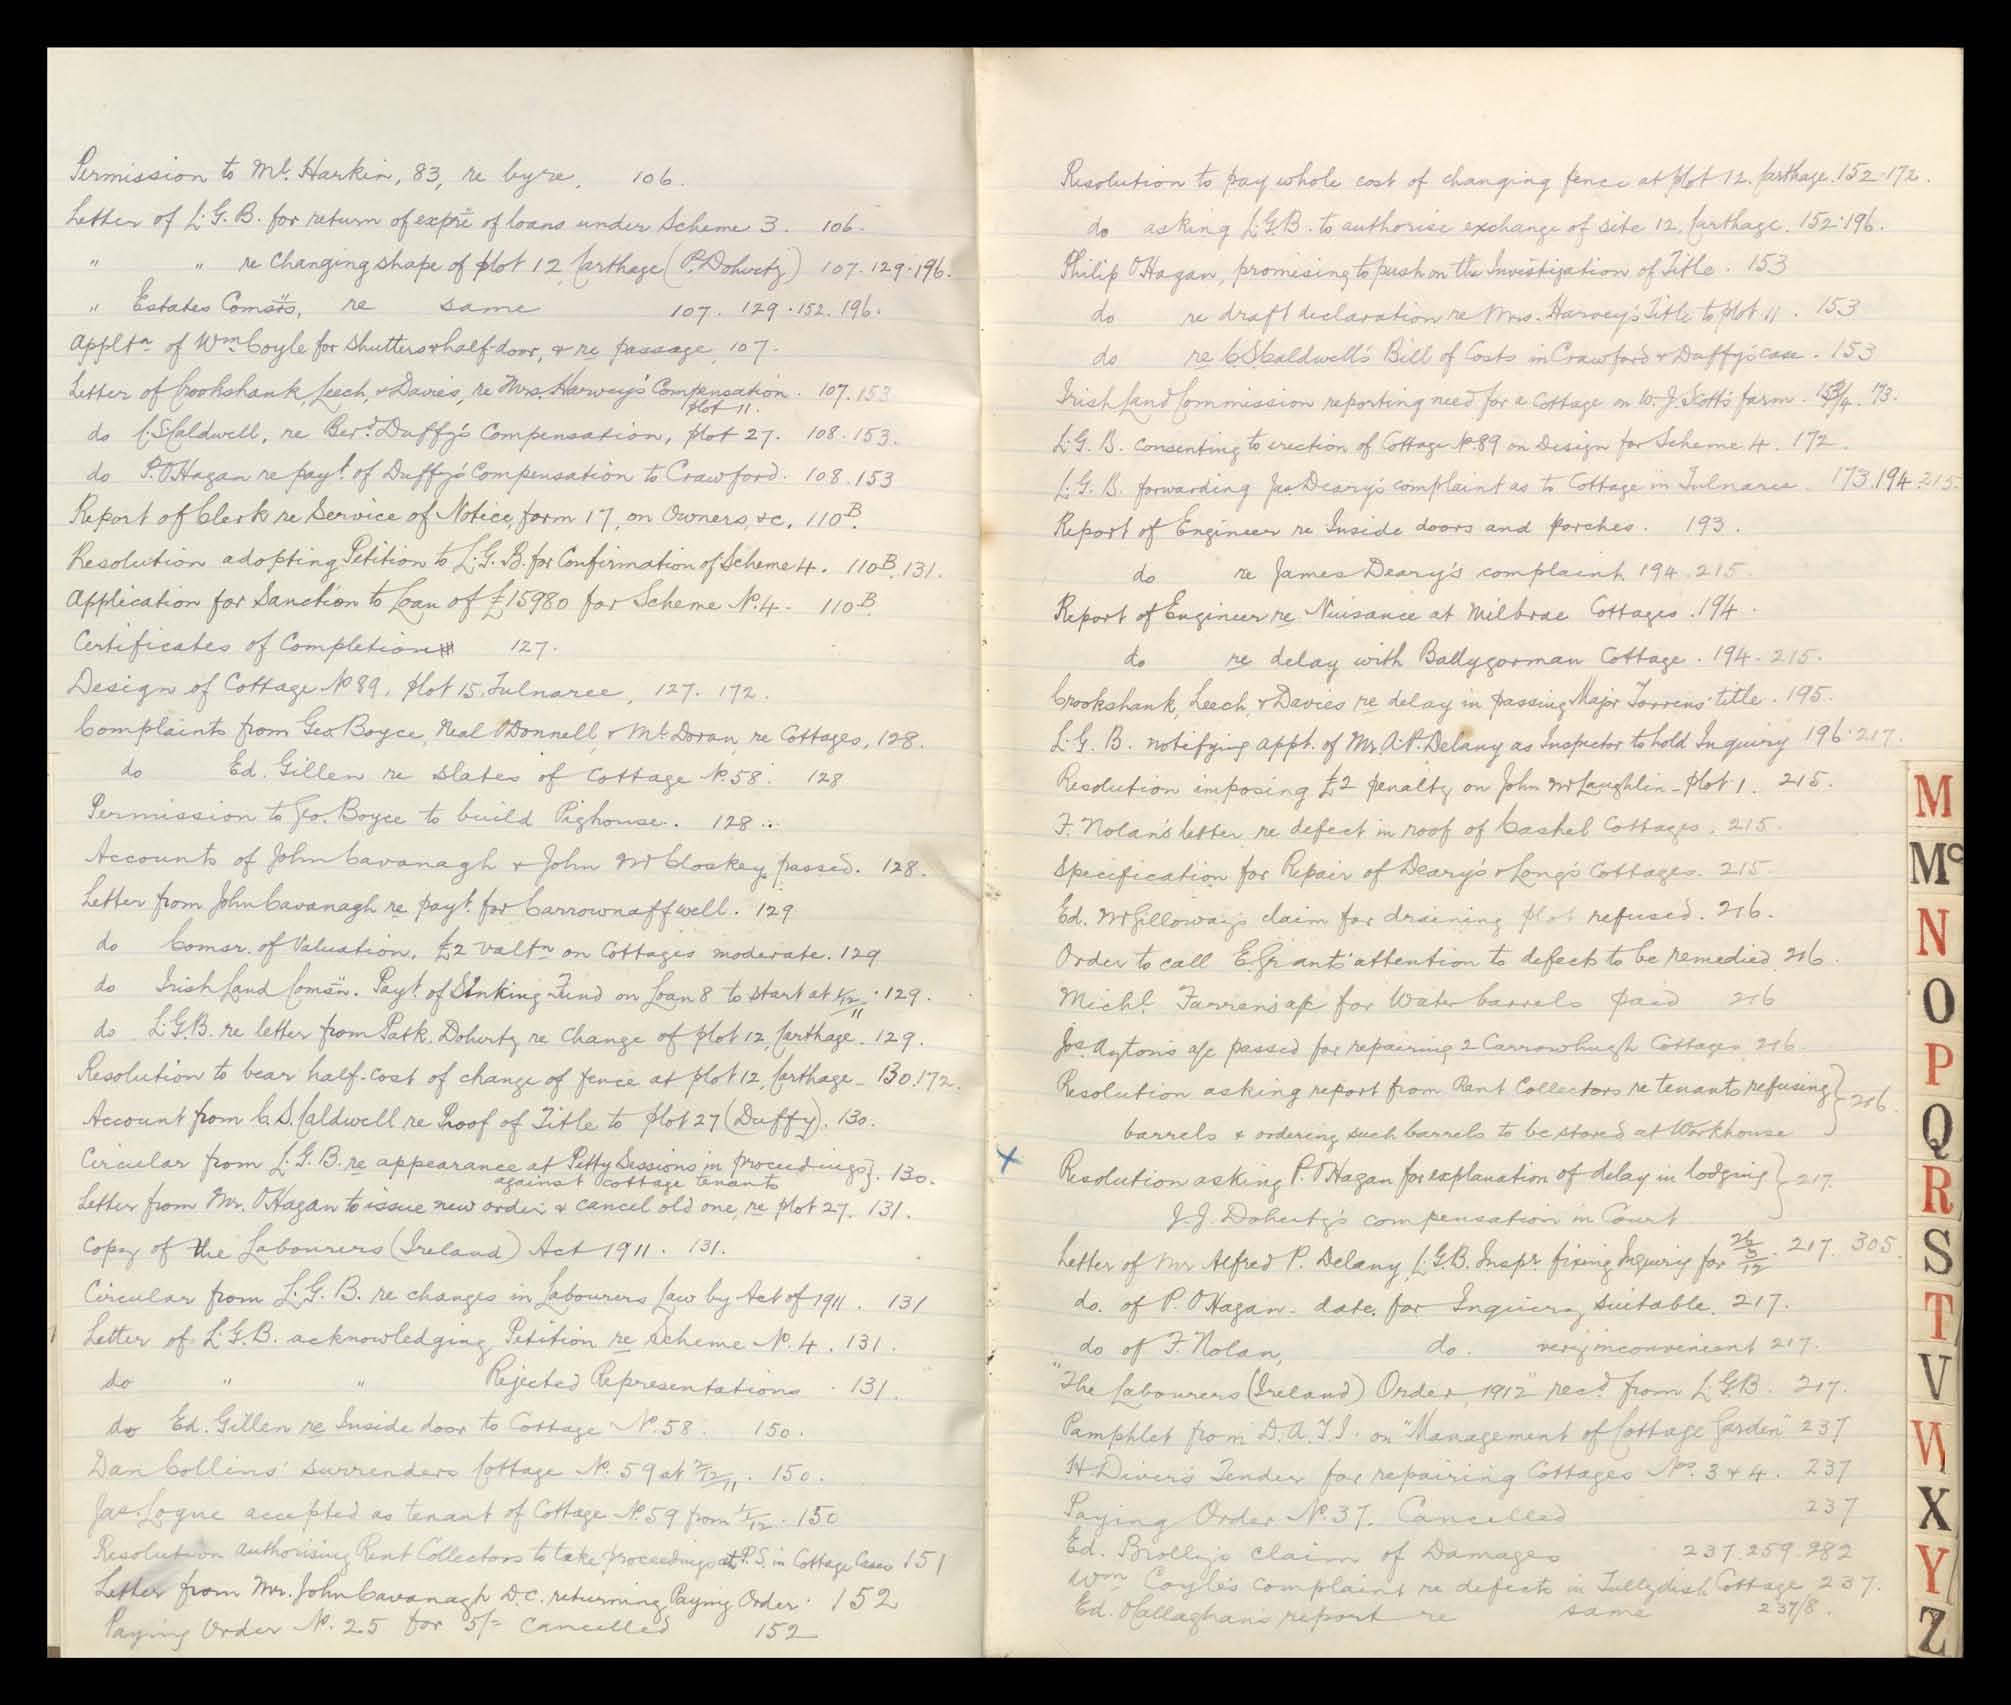 Permission to Ml. Harkin, 83, re byre, 106.
Letter of L.G.B. for return of expre of loans under Scheme 3. 106.
" " re changing shape of plot 12, Carthage (P. Doherty) 107.129.196.
" Estates Comsrs, re same 107. 129.152.196.
Appltn of Wm Coyle for shutters & half-door, & re passage, 107.
Letter of Crookshank, Leech, & Davies, re Mrs. Harvey's Compensation. 107.153
plot 11.
do C.S. Caldwell, re Berd. Duffy's Compensation, plot 27. 108.153.
do P. O'Hagan re payt. of Duffy's Compensation to Crawford. 108.153
Report of Clerk re Service of Notice, form 17, on Owners, &c. 110B.
Resolution adopting Petition to L.G.B. for Confirmation of Scheme 4. 110B.131.
Application for Sanction to Loan of £15980 for Scheme No. 4. 110B.
Certificates of Completion 127.
Design of Cottage No 89, plot 15, Tulnaree, 127. 172.
Complaints from Geo. Boyce, Neal O'Donnell, & Ml. Doran, re Cottages, 128.
do Ed. Gillen re slates of Cottage No. 58. 128
Permission to Geo. Boyce to build Pighouse. 128.
Accounts of John Cavanagh & John McCloskey passed. 128.
Letter from John Cavanagh re payt. for Carrownaff well. 129
do Comsr. of Valuation, £2 valtn on Cottages moderate. 129
do Irish Land Comsn. Payt. of Sinking Fund on Loan 8 to start at 1/12/11. 129.
do L.G.B. re letter from Patk. Doherty re change of plot 12, Carthage. 129.
Resolution to bear half-cost of change of fence at plot 12, Carthage. 130.172.
Account from C.S. Caldwell re Proof of Title to plot 27 (Duffy). 130.
Circular from L.G.B. re appearance at Petty Sessions in proceedings}. 130.
against cottage tenants
Letter from Mr. O'Hagan to issue new order & cancel old one, re plot 27. 131.
Copy of the Labourers (Ireland) Act 1911. 131.
Circular from L.G.B. re changes in Labourers Law by Act of 1911. 131
Letter of L.G.B. acknowledging Petition re Scheme No. 4. 131.
do " " Rejected Representations. 131.
do Ed. Gillen re Inside door to Cottage No. 58. 150.
Dan Collins' surrenders Cottage No. 59 at 2/12/11. 150.
Jas. Logue accepted as tenant of Cottage No 59 from 1/1/12. 150
Resolution authorising Rent Collectors to take proceedings at P.S. in Cottage Cases 151
Letter from Mr. John Cavanagh D.C. returning Paying Order. 152
Paying Order No. 25 for 5/= cancelled 152
Resolution to pay whole cost of changing fence at plot 12. Carthage. 152.172.
do asking L.G.B. to authorise exchange of site 12, Carthage. 152.196.
Philip O'Hagan, promising to push on the Investigation of Title. 153
do re draft declaration re Mrs. Harvey's Title to plot 11. 153
do re C.S. Caldwell's Bill of Costs in Crawford & Duffy's case. 153
Irish Land Commission reporting need for a Cottage on W.J. Scott's farm. 153/4. 173.
L.G.B. consenting to erection of Cottage No. 89 on Design for Scheme 4. 172.
L.G.B. forwarding Jas. Deary's complaint as to Cottage in Tulnaree. 173.194.215.
Report of Engineer re Inside doors and porches. 193.
do re James Deary's complaint. 194.215.
Report of Engineer re Nuisance at Milbrae Cottages. 194.
do re delay with Ballygorman Cottage. 194.215.
Crookshank, Leech, & Davies re delay in passing Major Torrens' title. 195.
L.G.B. notifying appt. of Mr. A.P. Delany as Inspector to hold Inquiry 196.217.
Resolution imposing £2 penalty on John McLaughlin - plot 1. 215.
F. Nolan's letter re defect in roof of Cashel Cottages. 215.
Specification for Repair of Deary's & Long's Cottages. 215.
Ed. McGilloway's claim for draining plot refused. 216.
Order to call E. Grant's attention to defects to be remedied. 216.
Michl. Farren's a/c for Water barrels paid 216
Jos. Ayton's a/c passed for repairing 2 Carrowhugh Cottages. 216.
Resolution asking report from Rent Collectors re tenants refusing } 216.
barrels & ordering such barrels to be stored at Workhouse
x Resolution asking P. O'Hagan for explanation of delay in lodging } 217.
J.J. Doherty's compensation in Court
Letter of Mr Alfred P. Delany, L.G.B. Inspr. fixing Inquiry for 26/3/12. 217. 305.
do. of P. O'Hagan - date for Inquiry suitable. 217.
do of F. Nolan, do. very inconvenient 217.
"The Labourers (Ireland) Order, 1912" recd. from L.G.B. 217.
Pamphlet from D.A.T.I. on "Management of Cottage Garden" 237
H. Diver's Tender for repairing Cottages Nos. 3 & 4. 237
Paying Order No. 37. Cancelled 237
Ed. Brolly's claim of Damages 237.259.282
Wm Coyle's complaint re defects in Tullydish Cottage 237.
Ed. O'Callaghan's report re same 237/8.
M
Mc
N
O
P
Q
R
S
T
V
W
X
Y
Z